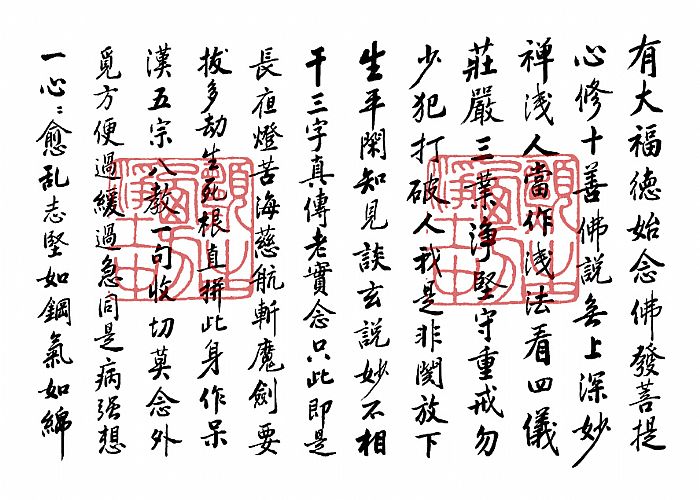 有大福德始念佛發菩提
心修十善佛說無上深妙
禅淺人當作淺法看四儀
莊嚴三業淨堅守重戒勿
少犯打破人我是非関放下
生平閑知見談玄說妙不相
干三字真傳老實念只此即是
長夜燈苦海慈航斬魔劍要
拔多劫生死根直拼此身作呆
漢五宗八教一句收切莫念外
覓方便過緩過急同是病强想
一心心愈乱志堅如鋼氣如綿